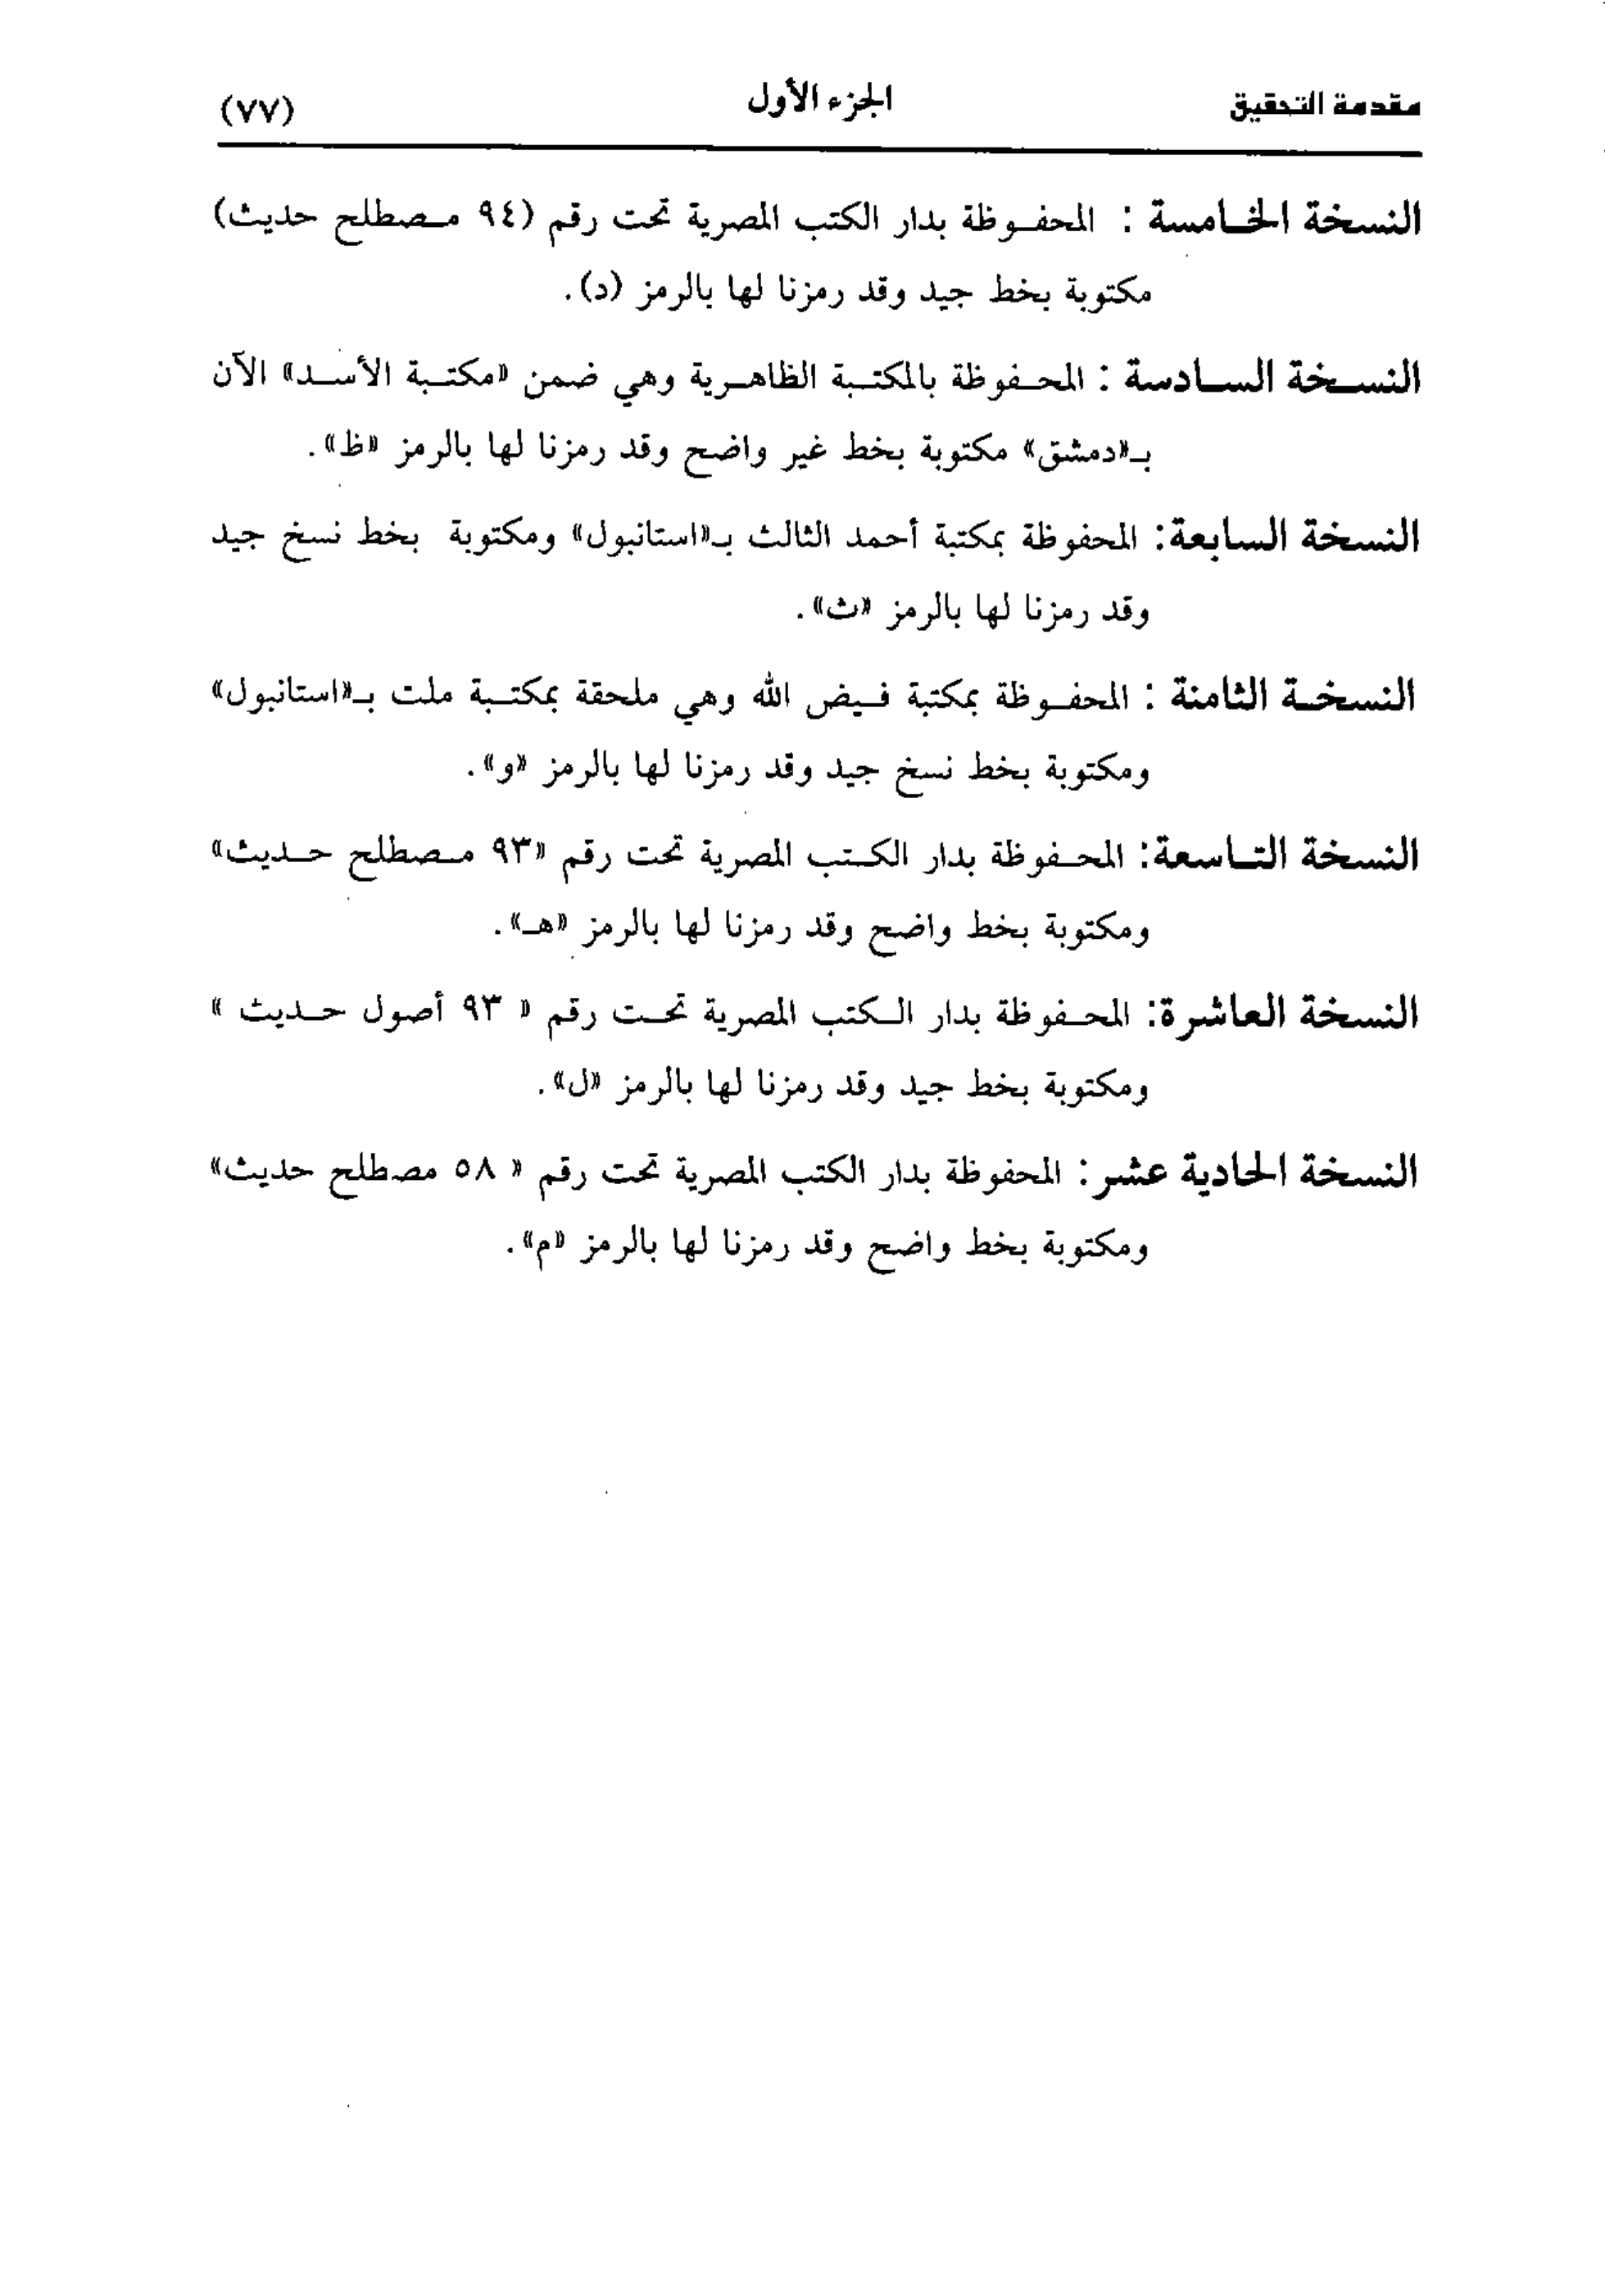 مقدمة التحقيق الجزء الأول (٧٧)
النسخة الخامسة : المحفوظة بدار الكتب المصرية تحت رقم (٩٤ مصطلح حديث)
مكتوبة بخط جيد وقد رمزنا لها بالرمز (د).
النسخة السادسة : المحفوظة بالمكتبة الظاهرية وهي ضمن «مكتبة الأسد» الآن
بـ«دمشق» مكتوبة بخط غير واضح وقد رمزنا لها بالرمز «ظ».
النسخة السابعة: المحفوظة بمكتبة أحمد الثالث بـ«استانبول» ومكتوبة بخط نسخ جيد
وقد رمزنا لها بالرمز «ث».
النسخة الثامنة : المحفوظة بمكتبة فيض الله وهي ملحقة بمكتبة ملت بـ«استانبول»
ومكتوبة بخط نسخ جيد وقد رمزنا لها بالرمز «و».
النسخة التاسعة: المحفوظة بدار الكتب المصرية تحت رقم «٩٣ مصطلح حديث»
ومكتوبة بخط واضح وقد رمزنا لها بالرمز «هـ».
النسخة العاشرة: المحفوظة بدار الكتب المصرية تحت رقم « ٩٣ أصول حديث »
ومكتوبة بخط جيد وقد رمزنا لها بالرمز «ل».
النسخة الحادية عشر : المحفوظة بدار الكتب المصرية تحت رقم « ٥٨ مصطلح حديث»
ومكتوبة بخط واضح وقد رمزنا لها بالرمز «م».